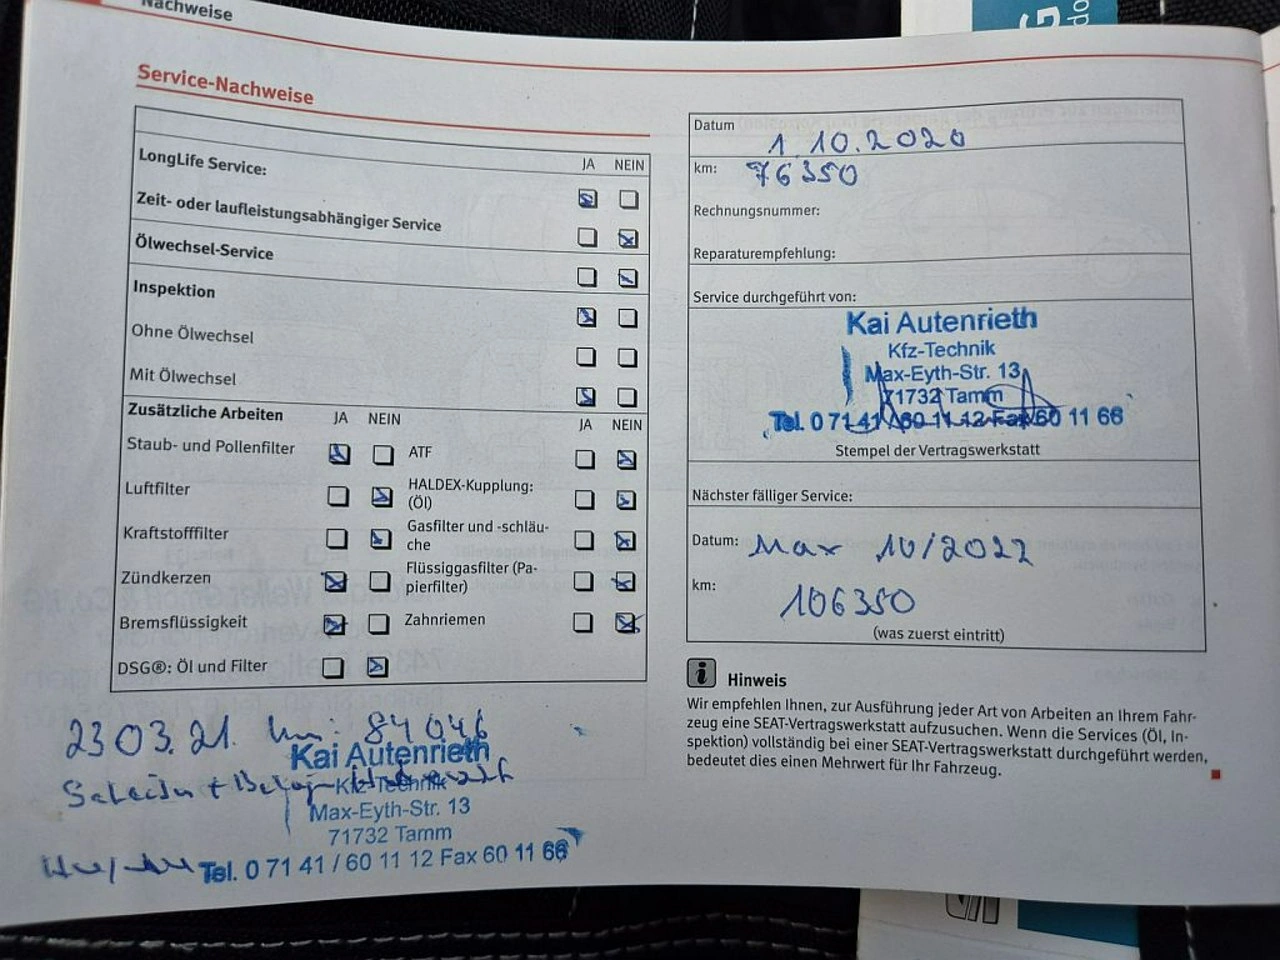 Nachweise
Service-Nachweise
JA NEIN
LongLife Service:
Zeit- oder laufleistungsabhängiger Service
Ölwechsel-Service
Inspektion
Ohne Ölwechsel
Mit Ölwechsel
Zusätzliche Arbeiten JA NEIN JA NEIN
Staub- und Pollenfilter ATF
Luftfilter HALDEX-Kupplung:
(Öl)
Kraftstofffilter Gasfilter und -schläu-
che
Zündkerzen Flüssiggasfilter (Pa-
pierfilter)
Bremsflüssigkeit Zahnriemen
DSG®: Öl und Filter
23 03. 21. km: 84046
Kai Autenrieth
Kfz-Technik
Max-Eyth-Str. 13
71732 Tamm
Tel. 0 71 41 / 60 11 12 Fax 60 11 66
Datum 1 10.2020
km: 76350
Rechnungsnummer:
Reparaturempfehlung:
Service durchgeführt von:
Kai Autenrieth
Kfz-Technik
Max-Eyth-Str. 13
71732 Tamm
Tel. 0 71 41 / 60 11 12 Fax 60 11 66
Stempel der Vertragswerkstatt
Nächster fälliger Service:
Datum: Max 10/2022
km: 106350
(was zuerst eintritt)
i Hinweis
Wir empfehlen Ihnen, zur Ausführung jeder Art von Arbeiten an Ihrem Fahr-
zeug eine SEAT-Vertragswerkstatt aufzusuchen. Wenn die Services (Öl, In-
spektion) vollständig bei einer SEAT-Vertragswerkstatt durchgeführt werden,
bedeutet dies einen Mehrwert für Ihr Fahrzeug.